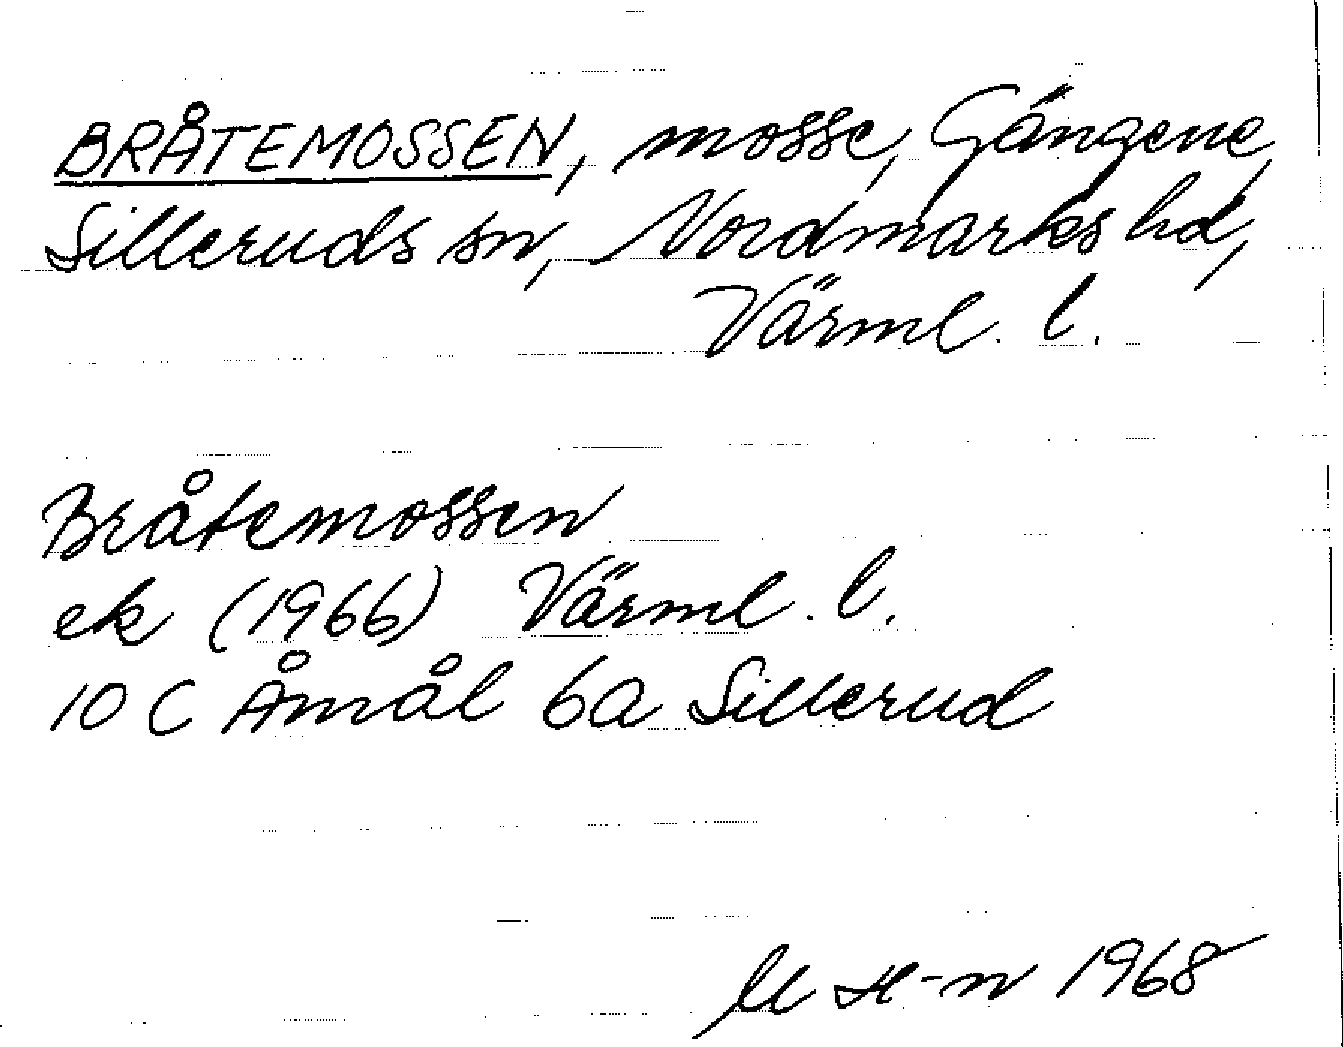 BRÅTEMOSSEN, mosse, Gängene,
Silleruds sn, Nordmarks hd,
Värml. l.
Bråtemossen
ek (1966) Värml. l.
10 C Åmål 6a Sillerud
M H-n 1968